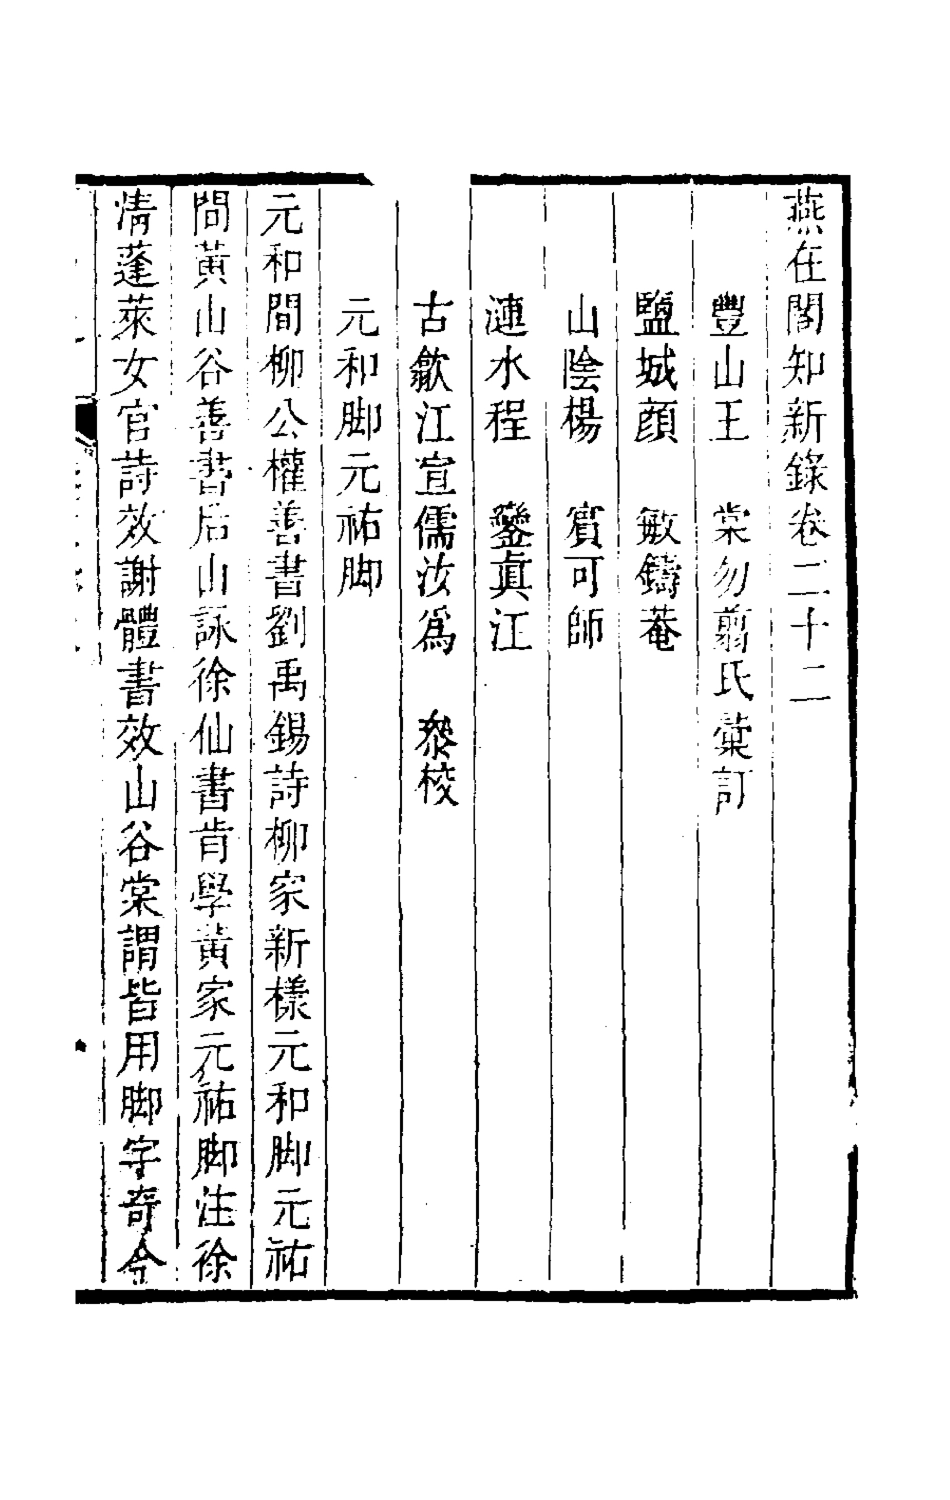 燕在閣知新錄卷二十二
豐山王　棠勿翦氏彙訂
鹽城顏　敏鑄菴
山陰楊　賓可師
漣水程　鑾真江
古歙江宣儒汝爲　叅校
元和脚元祐脚
元和間柳公權善書劉禹錫詩柳家新樣元和脚元祐
間黃山谷善書后山詠徐仙書肯學黃家元祐脚注徐
清蓬萊女官詩效謝體書效山谷棠謂皆用脚字奇今